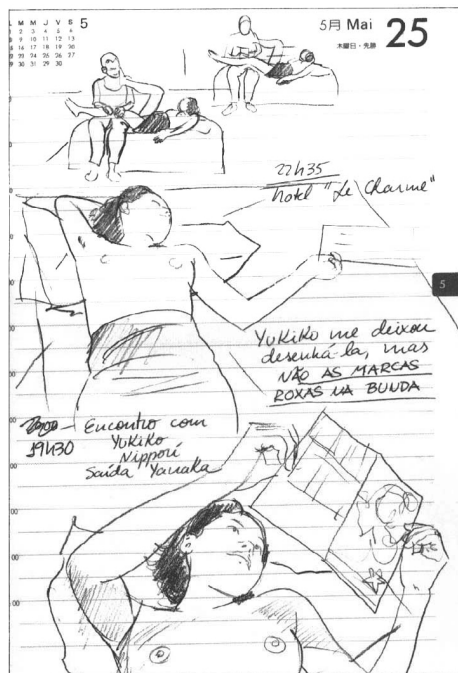 L M M J V S 5
1 2 3 4 5 6
8 9 10 11 12 13
15 16 17 18 19 20
22 23 24 25 26 27
29 30 31
5月 Mai 25
木曜日・先勝
22H35
hotel "Le Charme"
5
Yukiko me deixou
desenhá-la, mas
NÃO AS MARCAS
ROXAS NA BUNDA
19H30
Encontro com
Yukiko
Nippori
Saída Yanaka